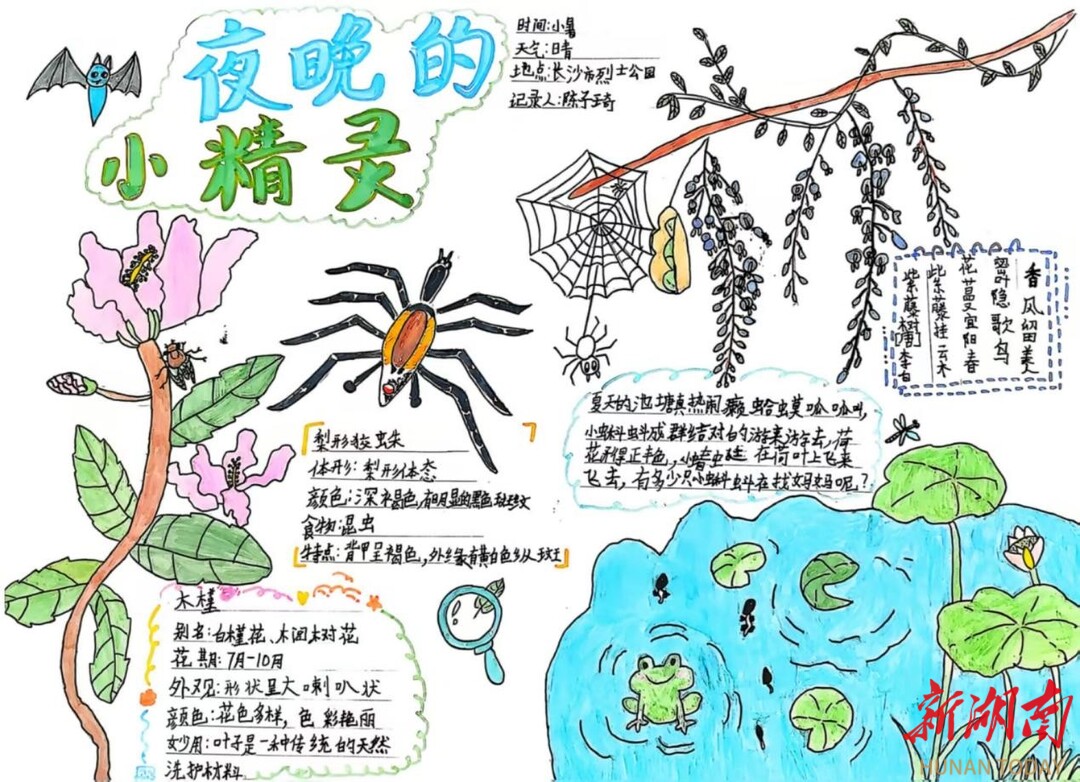 夜晚的
小精灵
时间:小暑
天气:晴
地点:长沙市烈士公园
记录人:陈子琦
紫藤树[唐]李白
紫藤挂云木
花蔓宜阳春
密叶隐歌鸟
香瓜留美人
梨形狡蛛
体形:梨形体态
颜色:深褐色,有明显的黑色斑纹
食物:昆虫
特点:背甲呈褐色,外缘有黄白色纵斑
夏天的池塘真热闹癞蛤蟆呱呱叫,
小蝌蚪成群结对的游来游去,荷
花开得正艳,小蜻蜓在荷叶上飞来
飞去,有多少只小蝌蚪在找妈妈呢?
木槿
别名:白槿花、木树花
花期:7月-10月
外观:形状呈大喇叭状
颜色:花色多样,色彩艳丽
妙用:叶子是一种传统的天然
洗护材料
新湖南
HUNAN TODAY